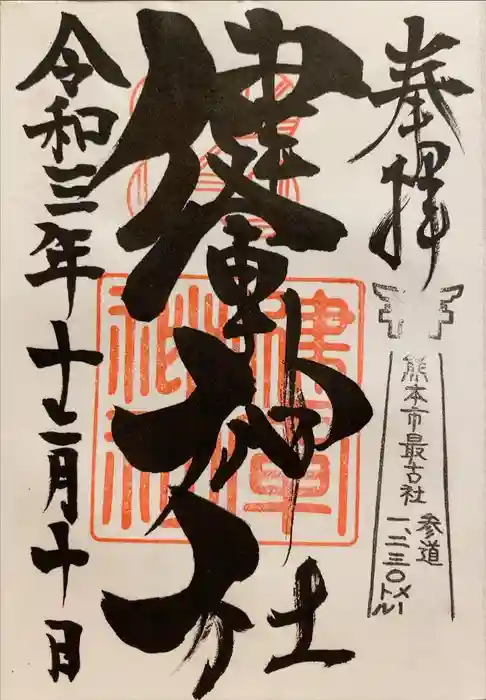 奉拝
熊本市最古社
参道
一、二三〇メートル
健軍神社
令和三年十二月十日
健軍神社